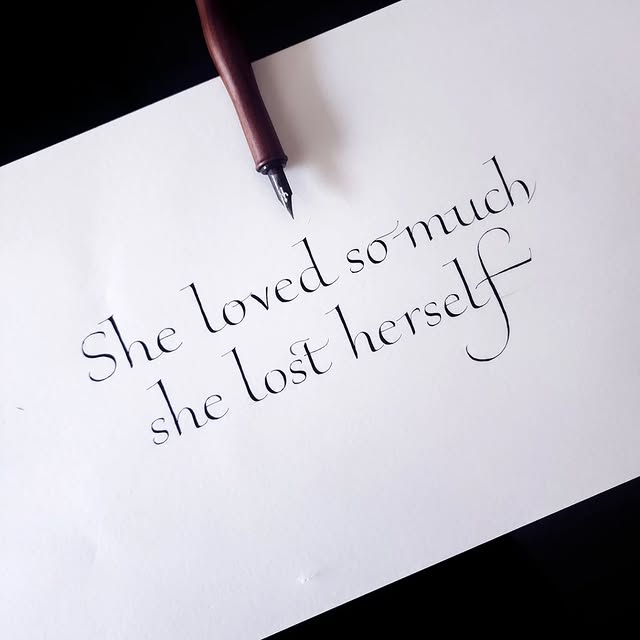 She loved so much
she lost herself